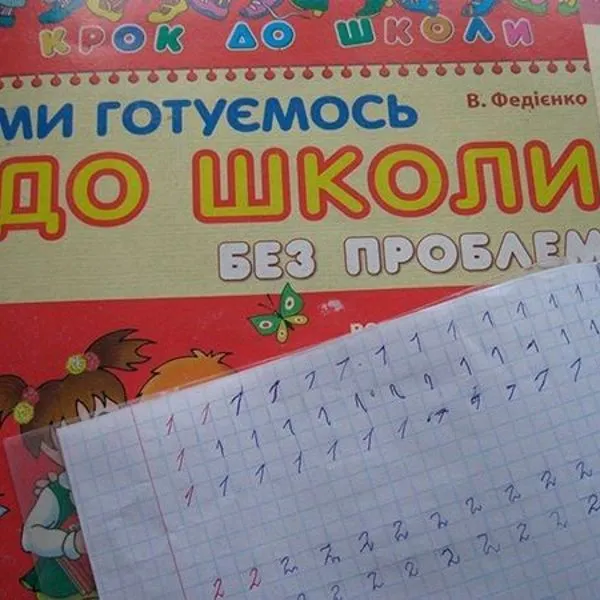 КРОК ДО ШКОЛИ
МИ ГОТУЄМОСЬ
В. Федієнко
ДО ШКОЛИ
БЕЗ ПРОБЛЕМ
1 1 1 1 1 1 1 1 1 1 1 1 1
1 1 1 1 1 1 1 1 1 1 1 1 1
1 1 1 1 1 1 1 1 1 1 1 1
2 2 2 2 2 2 2 2 2 2 2
2 2 2 2 2 2 2